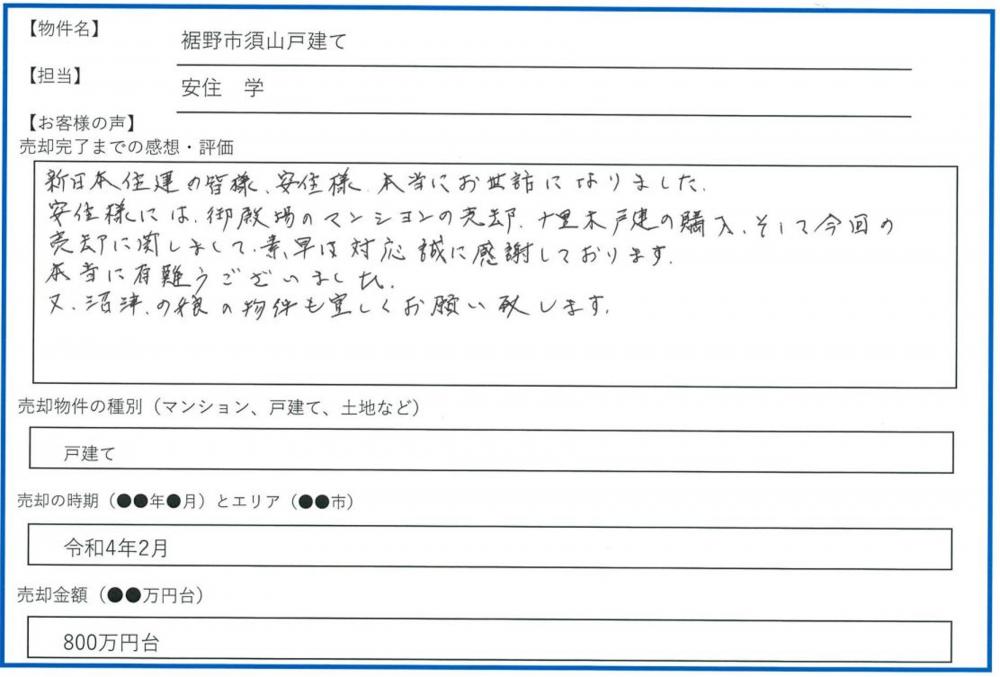 【物件名】
裾野市須山戸建て
【担当】
安住　学
【お客様の声】
売却完了までの感想・評価
新日本住建の皆様、安住様、本当にお世話になりました。
安住様には、御殿場のマンションの売却、十里木戸建の購入、そして今回の
売却に関しまして、素早い対応誠に感謝しております。
本当に有難うございました。
又、沼津、の娘の物件も宜しくお願い致します。
売却物件の種別（マンション、戸建て、土地など）
戸建て
売却の時期（●●年●月）とエリア（●●市）
令和4年2月
売却金額（●●万円台）
800万円台